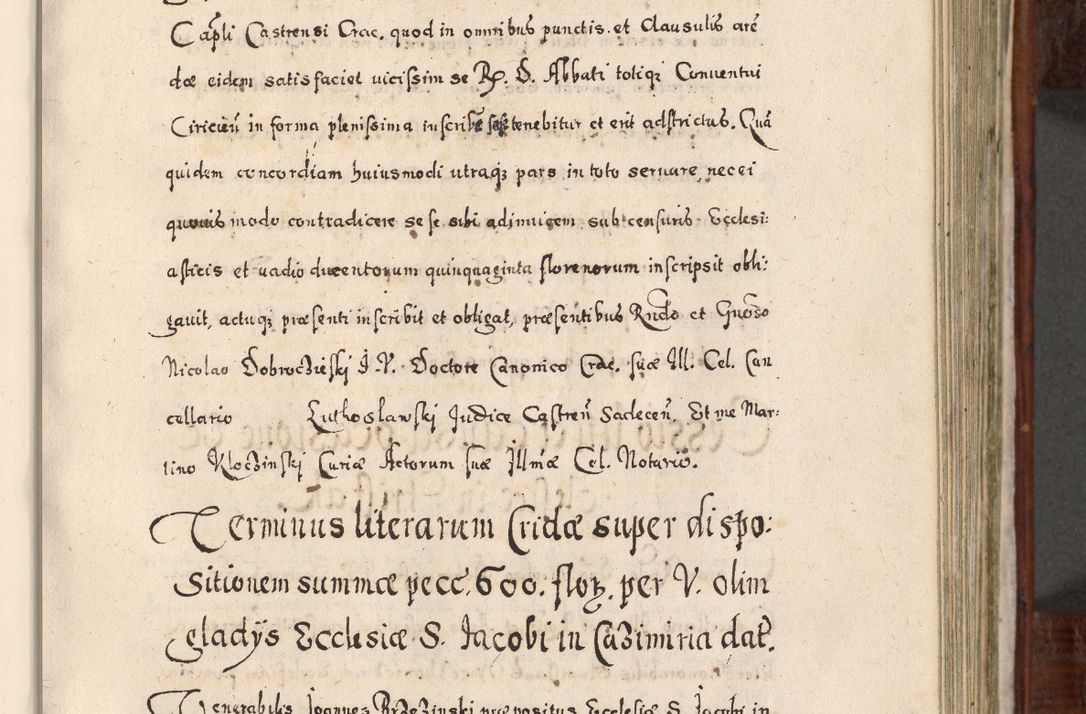 Capli Castrensi Crac. quod in omnibus punctis et Clausulis are
dæ eidem satisfaciet uicissim se R. D. Abbati totiqz Conuentui
Ciricien in forma plenissima inscribe tenebitur et erit adstrictus. Quã
quidem concordiam huiusmodi utraqz pars in toto seruare, necei
quouismodo contradicere sese sibi adinuicem sub censuris Ecclesi:
asticis et uadio ducentorum quinquaginta florenorum inscripsit obli:
gauit, actuqz præsenti inscribit et obligat, præsentibus Rndo et Gnoso
Nicolao Dobroczieski J. V. Doctore Canonico Crac. suæ Ill. Cel. Can
cellario Luthoslawski Judice Castren Sadecen, Et me Mar:
tino Kloczinski Curiæ Actorum suæ Illmæ Cel. Notario.
Terminus literarum Cridæ super dispo:
sitionem summæ pecc. 600. floz. per V. olim
gladÿs Ecclesiæ S. Jacobi in Cazimiria dat.
Venerabilis Joannes Brzezinski præpositus Ecclesiæ S. Jacobi in